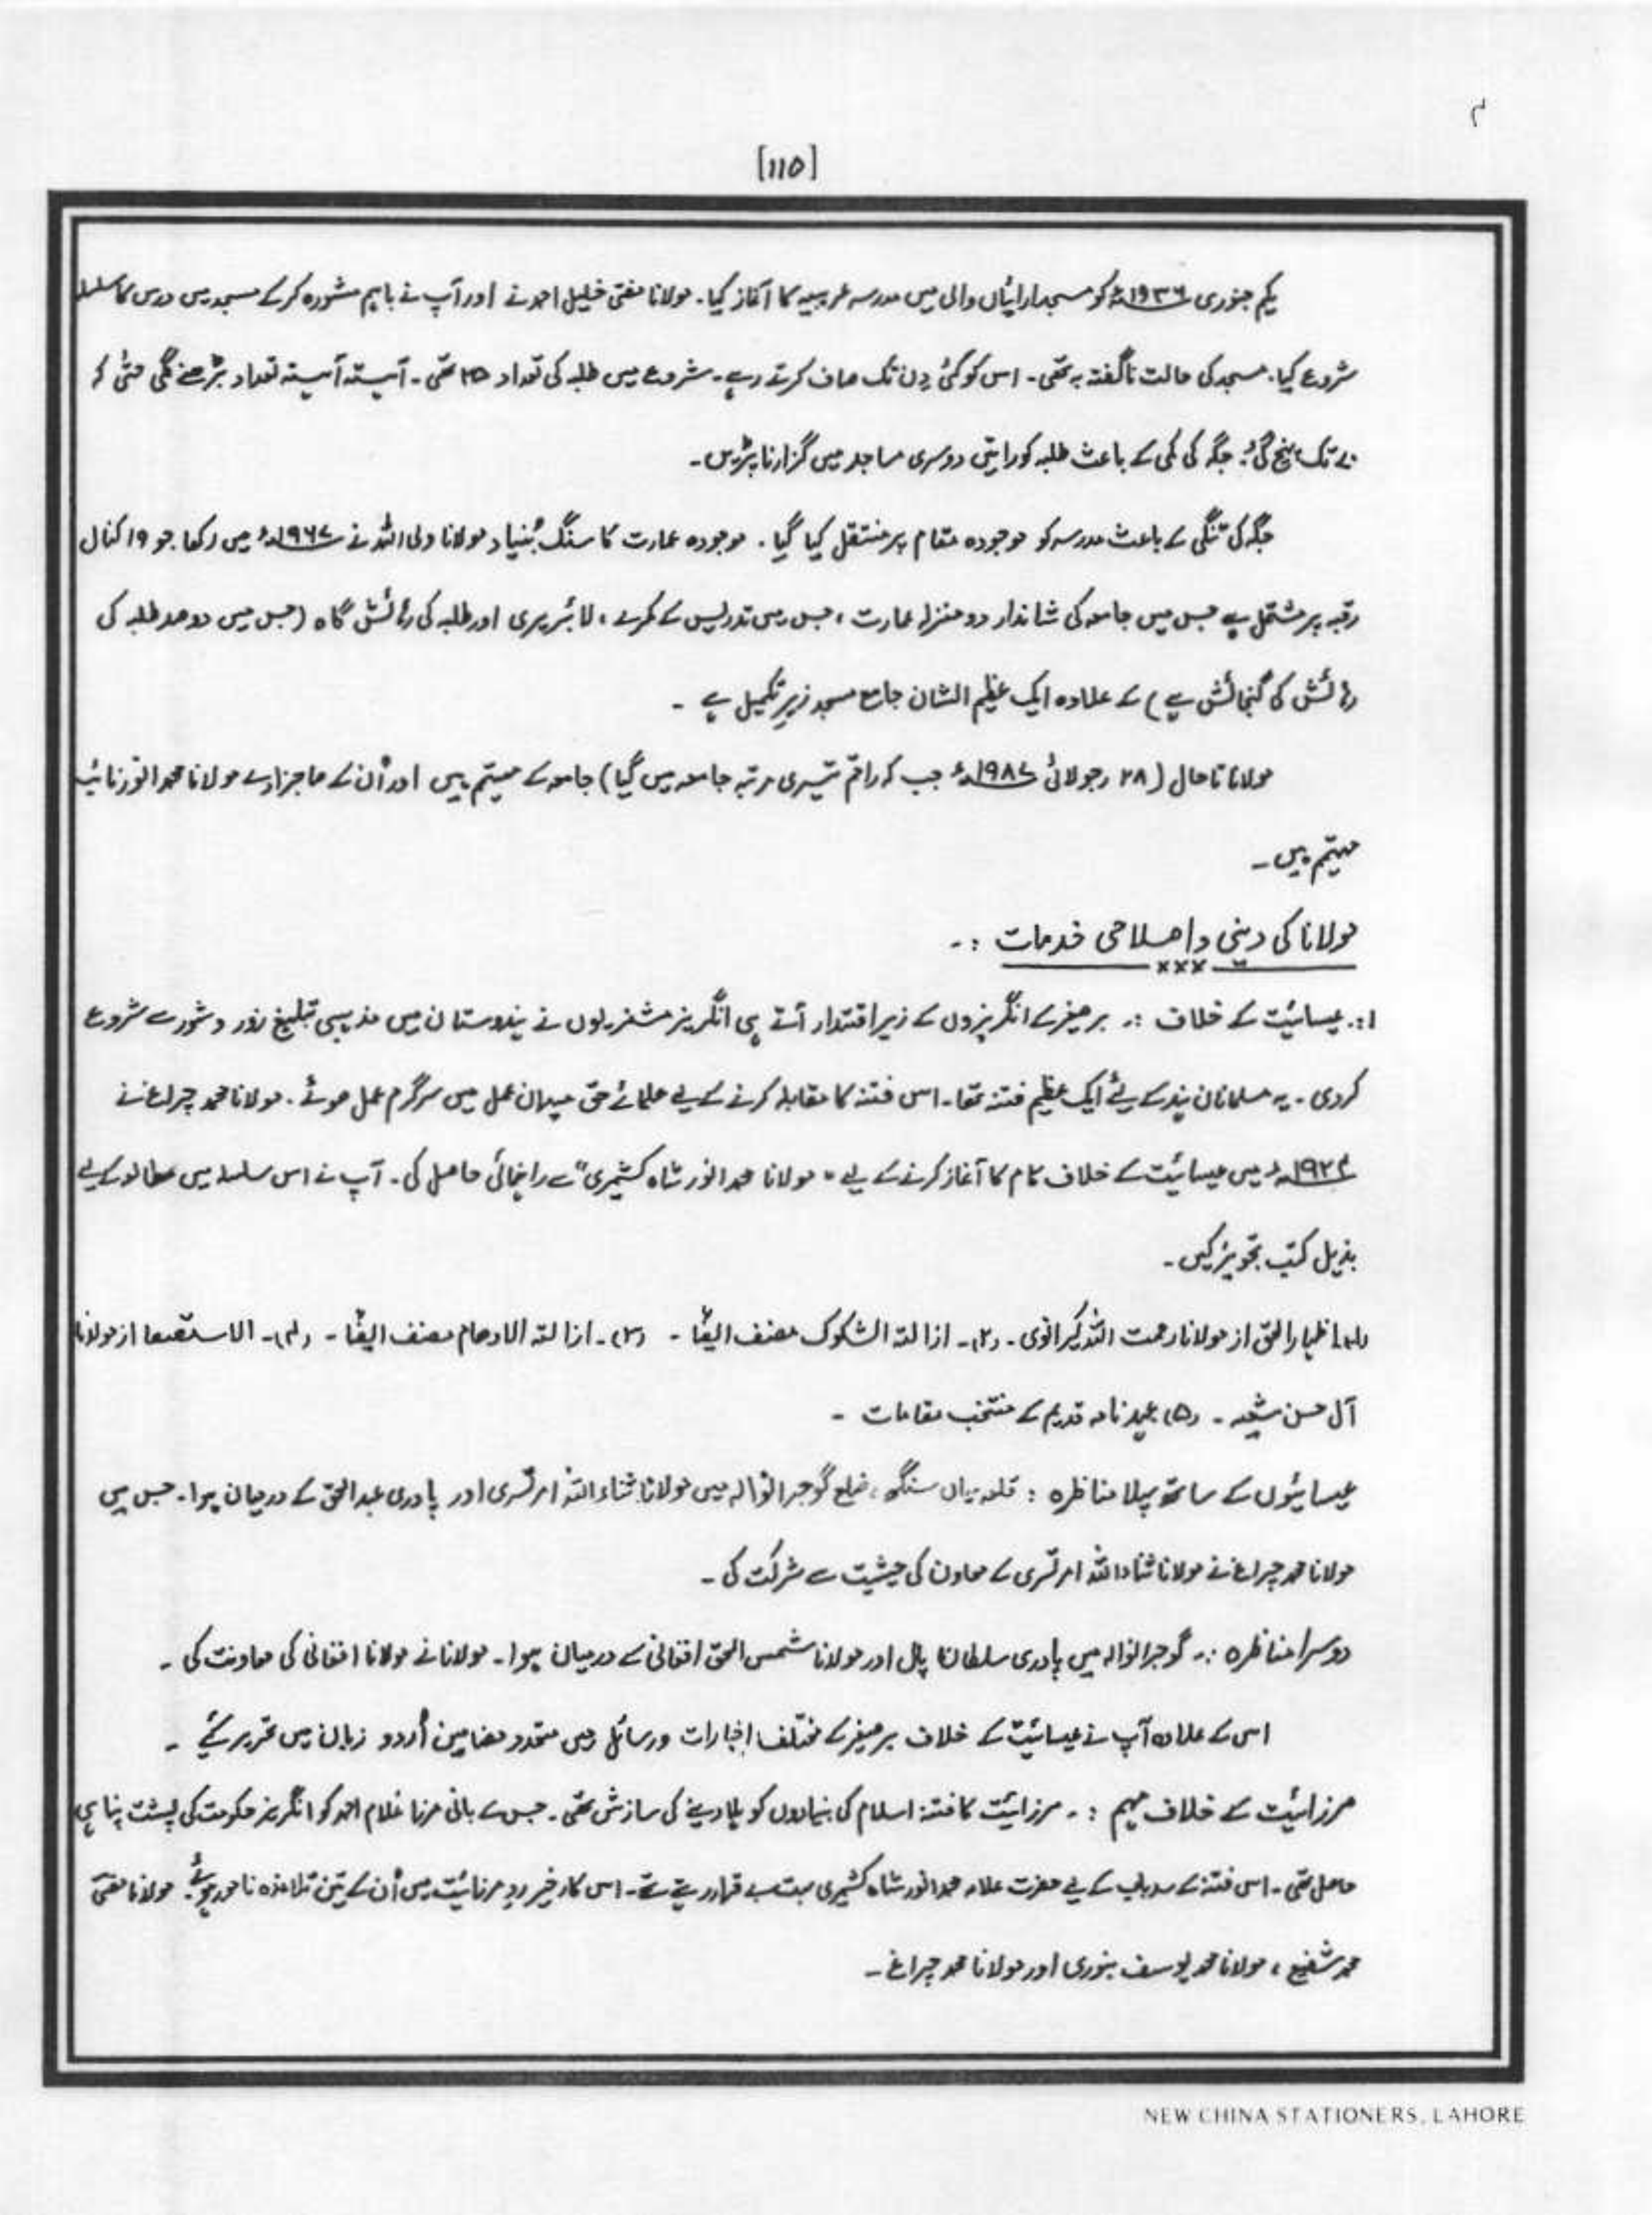 م
[۱۱۵]
یکم جنوری ۱۹۳۶ء کو مسجد ارائیاں والی میں مدرسہ عربیہ کا آغاز کیا۔ مولانا مفتی خلیل احمد نے اور آپ نے باہم مشورہ کر کے مسجد میں درس کا سلسلہ
شروع کیا۔ مسجد کی حالت ناگفتہ بہ تھی۔ اس کو کئی دِن تک صاف کرتے رہے۔ شروع میں طلبہ کی تعداد ۲۵ تھی۔ آہستہ آہستہ تعداد بڑھنے لگی حتیٰ کہ
۷۰ تک پہنچ گئی۔ جگہ کی کمی کے باعث طلبہ کو راتیں دوسری مساجد میں گزارنا پڑیں۔
جگہ کی تنگی کے باعث مدرسہ کو موجودہ مقام پر منتقل کیا گیا۔ موجودہ عمارت کا سنگ بُنیاد مولانا ولی اللہ نے ۱۹۶۷ء میں رکھا جو ۱۹ کنال
رقبہ پر مشتمل ہے جس میں جامعہ کی شاندار دو منزلہ عمارت، جس میں تدریس کے کمرے، لائبریری اور طلبہ کی رہائش گاہ (جس میں دو صد طلبہ کی
رہائش کی گنجائش ہے) کے علاوہ ایک عظیم الشان جامع مسجد زیرِ تکمیل ہے۔
مولانا تا حال (۲۸ جولائی ۱۹۸۷ء جب کہ راقم تیسری مرتبہ جامعہ میں گیا) جامعہ کے مہتمم ہیں اور اُن کے صاحبزادے مولانا محمد انور نائب
مہتمم ہیں۔
مولانا کی دینی و اصلاحی خدمات :۔
×××
۱:۔ عیسائیت کے خلاف :۔ برصغیر کے انگریزوں کے زیر اقتدار آتے ہی انگریز مشنریوں نے ہندوستان میں مذہبی تبلیغ زور و شور سے شروع
کر دی۔ یہ مسلمانان ہند کے لیے ایک عظیم فتنہ تھا۔ اس فتنہ کا مقابلہ کرنے کے لیے علمائے حق میدان عمل میں سرگرم عمل ہوئے۔ مولانا محمد چراغ نے
۱۹۲۴ء میں عیسائیت کے خلاف کام کا آغاز کرنے کے لیے "مولانا محمد انور شاہ کشمیری" سے راہنمائی حاصل کی۔ آپ نے اس سلسلہ میں مطالعہ کے لیے
بذیل کتب تجویز کیں۔
(۱)۔ اظہار الحق از مولانا رحمت اللہ کیرانوی۔ (۲)۔ ازالتہ الشکوک مصنف ایضًا۔ (۳)۔ ازالتہ الاوھام مصنف ایضًا۔ (۴)۔ الاستفسار از مولانا
آل حسن شیعہ۔ (۵) عہد نامہ قدیم کے منتخب مقامات۔
عیسائیوں کے ساتھ پہلا مناظرہ : قلعہ میاں سنگھ، ضلع گوجرانوالہ میں مولانا ثناء اللہ امرتسری اور پادری عبد الحق کے درمیان ہوا۔ جس میں
مولانا محمد چراغ نے مولانا ثناء اللہ امرتسری کے معاون کی حیثیت سے شرکت کی۔
دوسرا مناظرہ :۔ گوجرانوالہ میں پادری سلطان پال اور مولانا شمس الحق افغانی کے درمیان ہوا۔ مولانا نے مولانا افغانی کی معاونت کی۔
اس کے علاوہ آپ نے عیسائیت کے خلاف برصغیر کے مختلف اخبارات و رسائل میں متعدد مضامین اُردو زبان میں تحریر کیے۔
مرزائیت کے خلاف مہم :۔ مرزائیت کا فتنہ اسلام کی بنیادوں کو ہلا دینے کی سازش تھی۔ جس کے بانی مرزا غلام احمد کو انگریز حکومت کی پشت پناہی
حاصل تھی۔ اس فتنہ کے سدباب کے لیے حضرت علامہ محمد انور شاہ کشمیری بہت بے قرار رہتے تھے۔ اس کار خیر ردِ مرزائیت میں اُن کے تین تلامذہ نامور ہوئے۔ مولانا مفتی
محمد شفیع، مولانا محمد یوسف بنوری اور مولانا محمد چراغ۔
NEW CHINA STATIONERS, LAHORE